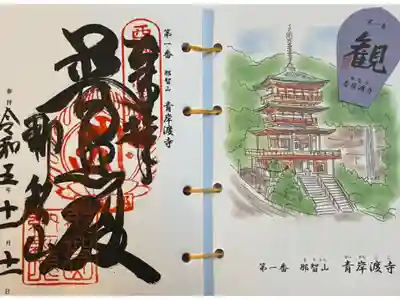 第一番 那智山 青岸渡寺
奉拝
普照殿
那智山
令和五年十一月十一日
第一番
観
青岸渡寺
第一番 那智山 青岸渡寺